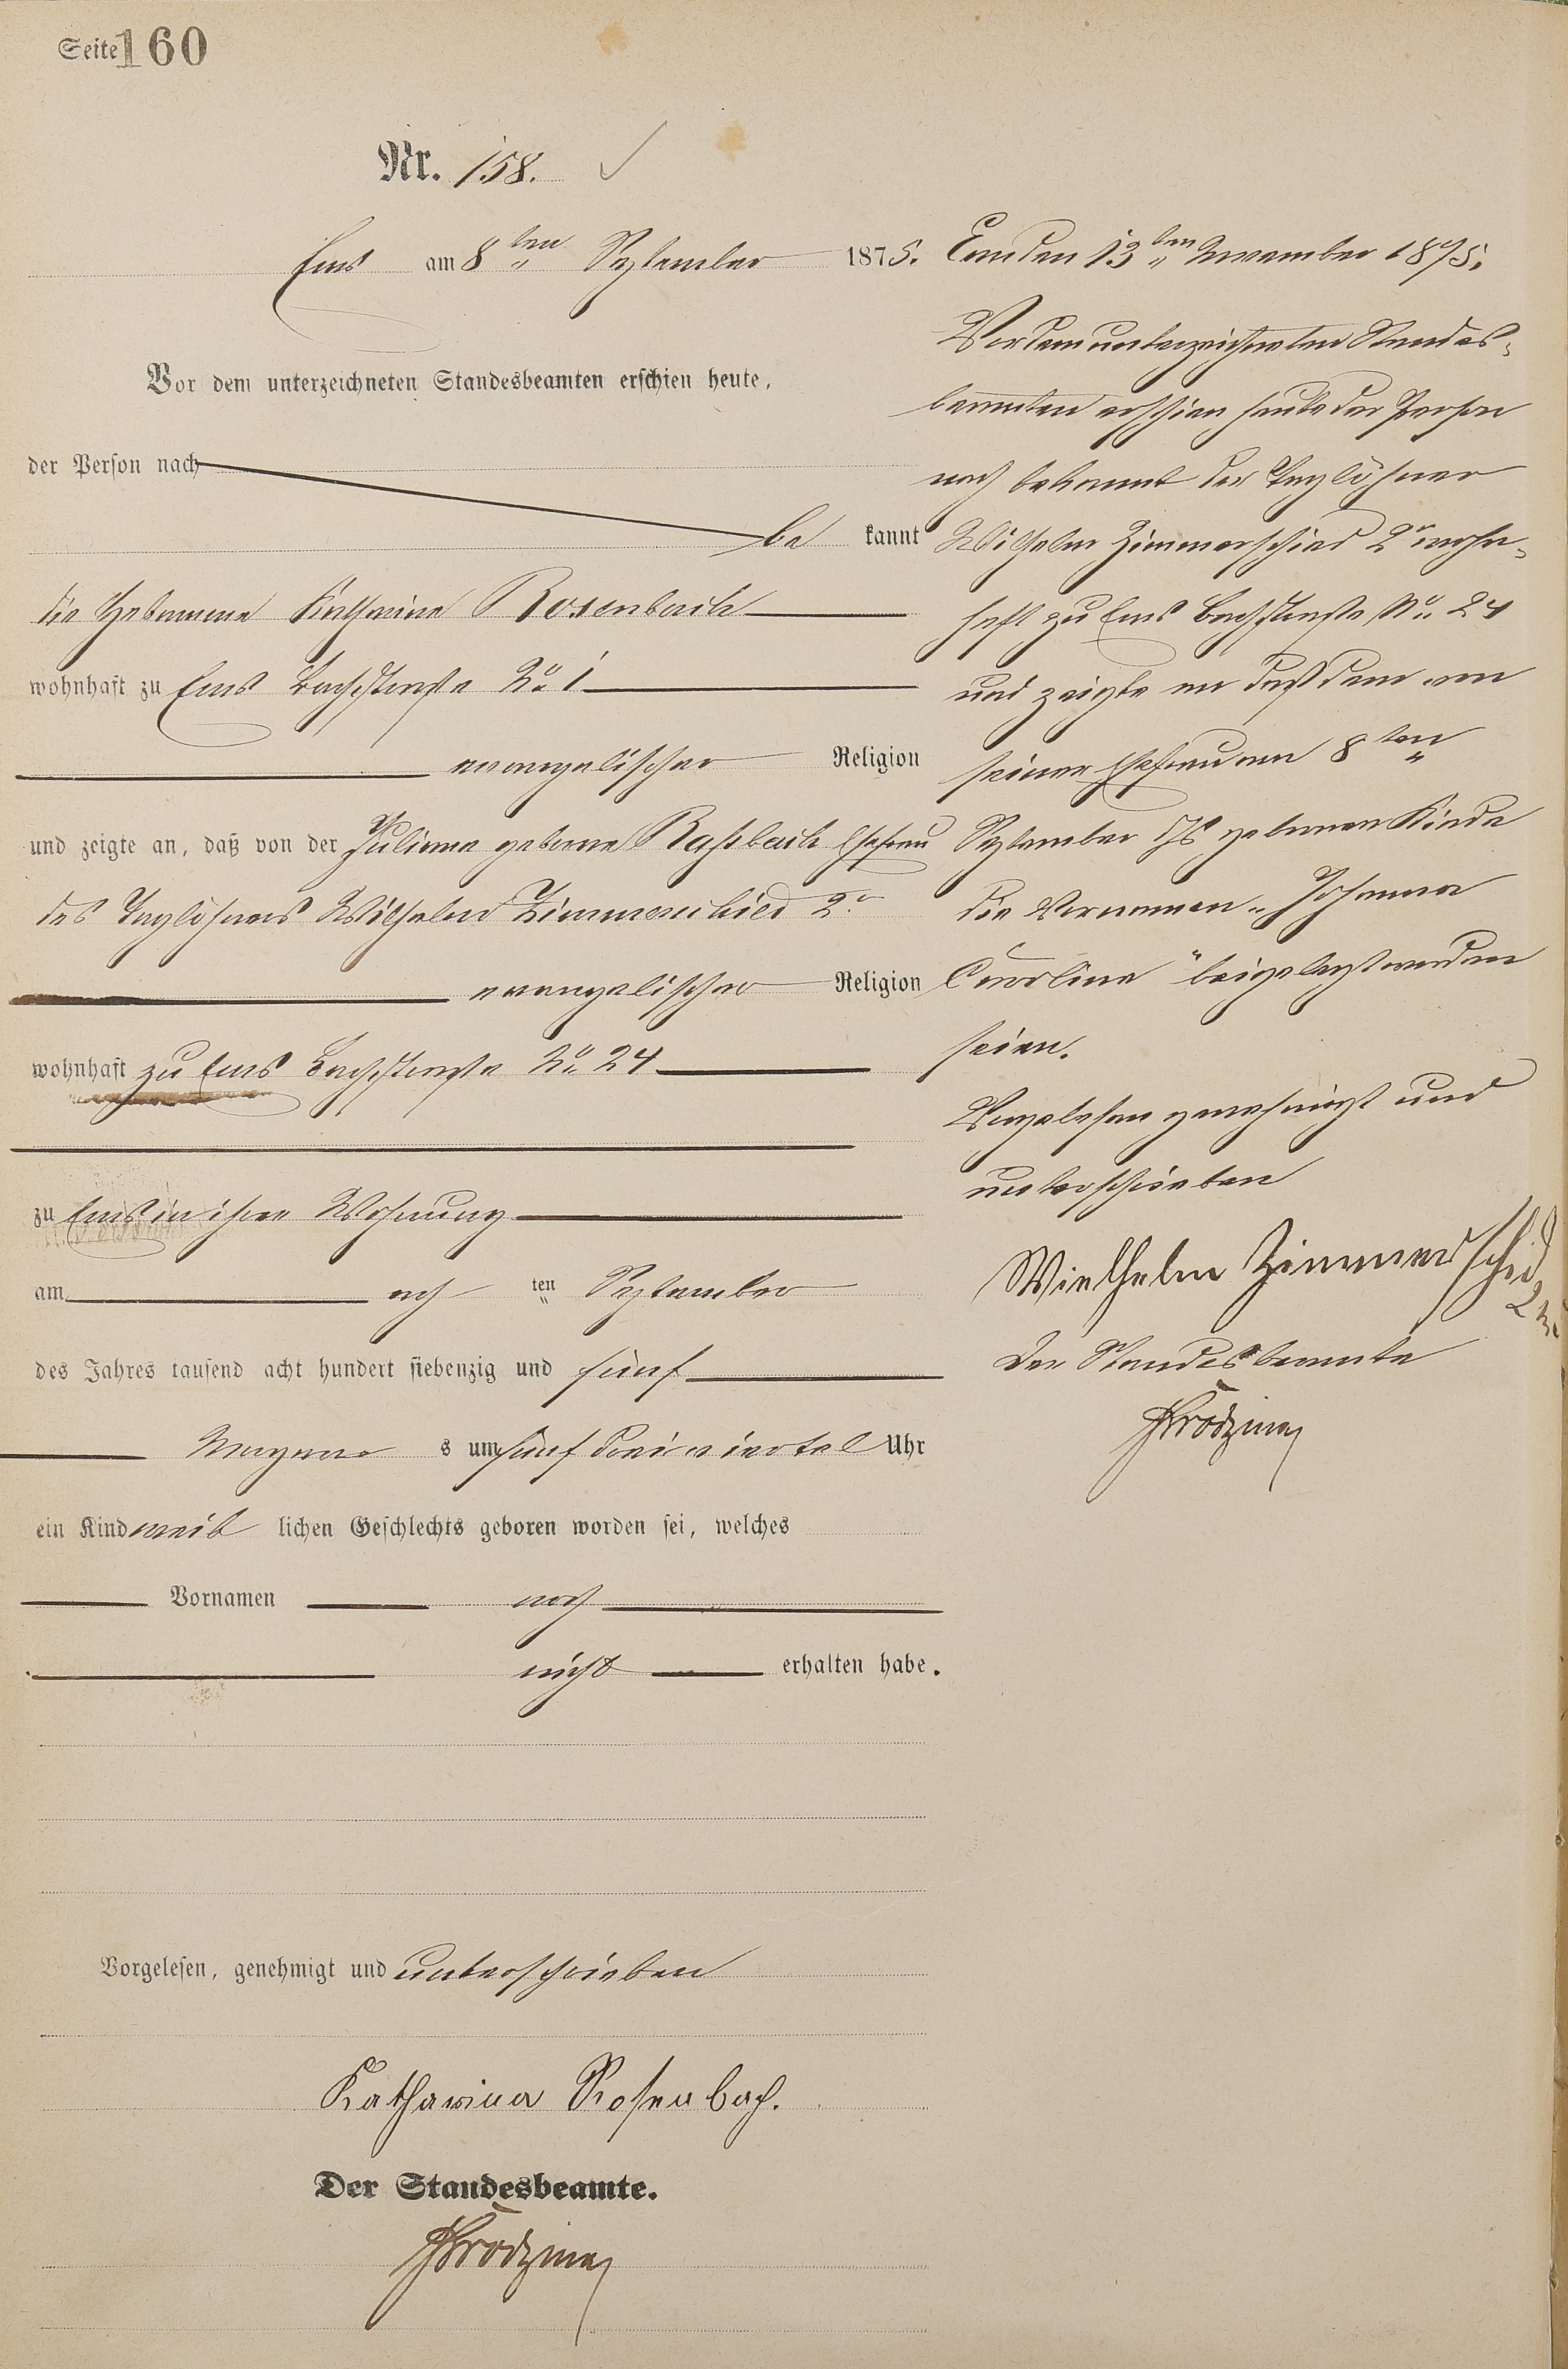 Seite 160
Nr. 158.
Ems am 8ten September 1875.
Vor dem unterzeichneten Standesbeamten erschien heute,
der Person nach
be kannt
die Hebamme Katharina Rosenbach
wohnhaft zu Ems Bachstraße No. 1
evangelischer Religion
und zeigte an, daß von der Juliane geborne Raßbach Ehefrau
des Taglöhners Wilhelm Zimmerschied 2r
evangelischer Religion
wohnhaft zu Ems Bachstraße No. 24
zu Ems in ihrer Wohnung
am acht ten September
des Jahres tausend acht hundert siebenzig und fünf
Morgens um fünf dreiviertel Uhr
ein Kind weib lichen Geschlechts geboren worden sei, welches
Vornamen noch
nicht erhalten habe.
Vorgelesen, genehmigt und unterschrieben
Katharina Rosenbach.
Der Standesbeamte.
Ems den 13ten November 1875.
Vor dem unterzeichneten Standes-
beamten erschien heute der Person
nach bekannt der Taglöhner
Wilhelm Zimmerschied 2r wohn-
haft zu Ems Bachstraße No. 24
und zeigte an daß dem von
seiner Ehefrau am 8ten
September Js gebornen Kinde
die Vornamen „Johanna
Caroline" beigelegt worden
seien.
Vorgelesen genehmigt und
unterschrieben
Wielhelm Zimmerschid
Der Standesbeamte